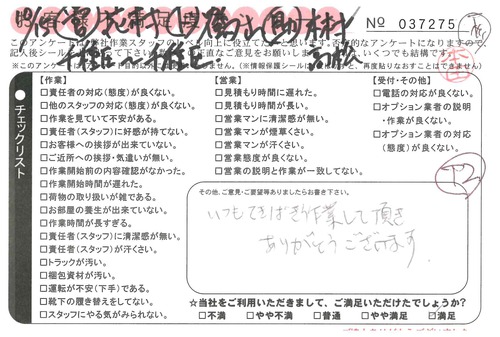 No 037275
このアンケートは弊社作業スタッフのレベル向上に役立てたいと思います。否定的なアンケートになりますので、
記入後シールを貼ってお渡しください。正直なご意見をお聞かせ下さい。いくつでも結構です。
※このアンケートは
再度、貼りなおすことはできません)
チェックリスト
【作業】
□責任者の対応(態度)が良くない。
□他のスタッフの対応(態度)が良くない。
□作業を見ていて不安がある。
□責任者(スタッフ)に好感が持てない。
□お客様への挨拶が出来ていない。
□ご近所への挨拶・気遣いが無い。
□作業開始前の内容確認がなかった。
□作業開始時間が遅れた。
□荷物の取り扱いが雑である。
□お部屋の養生が出来ていない。
□作業時間が長すぎる。
□責任者(スタッフ)に清潔感が無い。
□責任者(スタッフ)が汗くさい。
□トラックが汚い。
□梱包資材が汚い。
□運転が不安(下手)である。
□靴下の履き替えをしてない。
□スタッフにやる気がみられない。
【営業】
□見積もり時間に遅れた。
□見積もり時間が長い。
□営業マンに清潔感が無い。
□営業マンが煙草くさい。
□営業マンが汗くさい。
□営業態度が良くない。
□営業の説明と作業が一致してない。
【受付・その他】
□電話の対応が良くない。
□オプション業者の説明
・作業が良くない。
□オプション業者の対応
(態度)が良くない。
その他、ご意見・ご要望等ありましたらお書き下さい。
いつもてきぱき作業して頂き
ありがとうございます。
☆当社をご利用いただきまして、ご満足いただけたでしょうか?
□不満 □やや不満 □普通 □やや満足 ☑満足